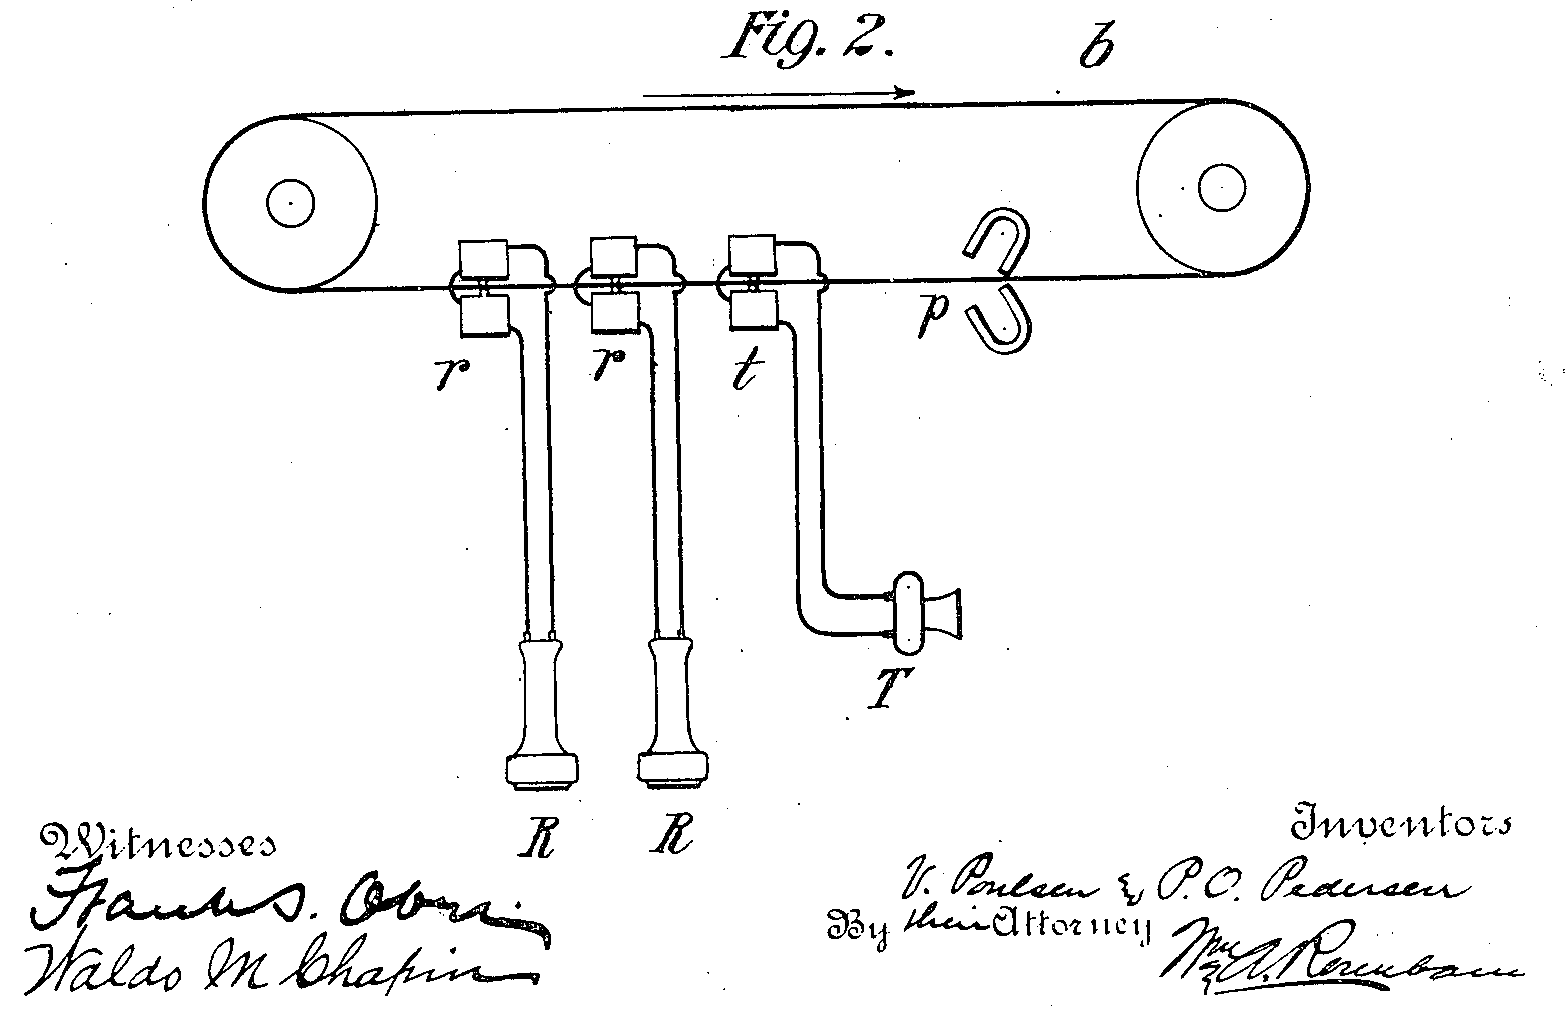 Fig. 2.
b
p
r
r
t
T
R
R
Witnesses
Waldo M Chapin
Inventors
V. Poulsen & P.O. Pedersen
By their Attorney
Wm A. Rosenbaum